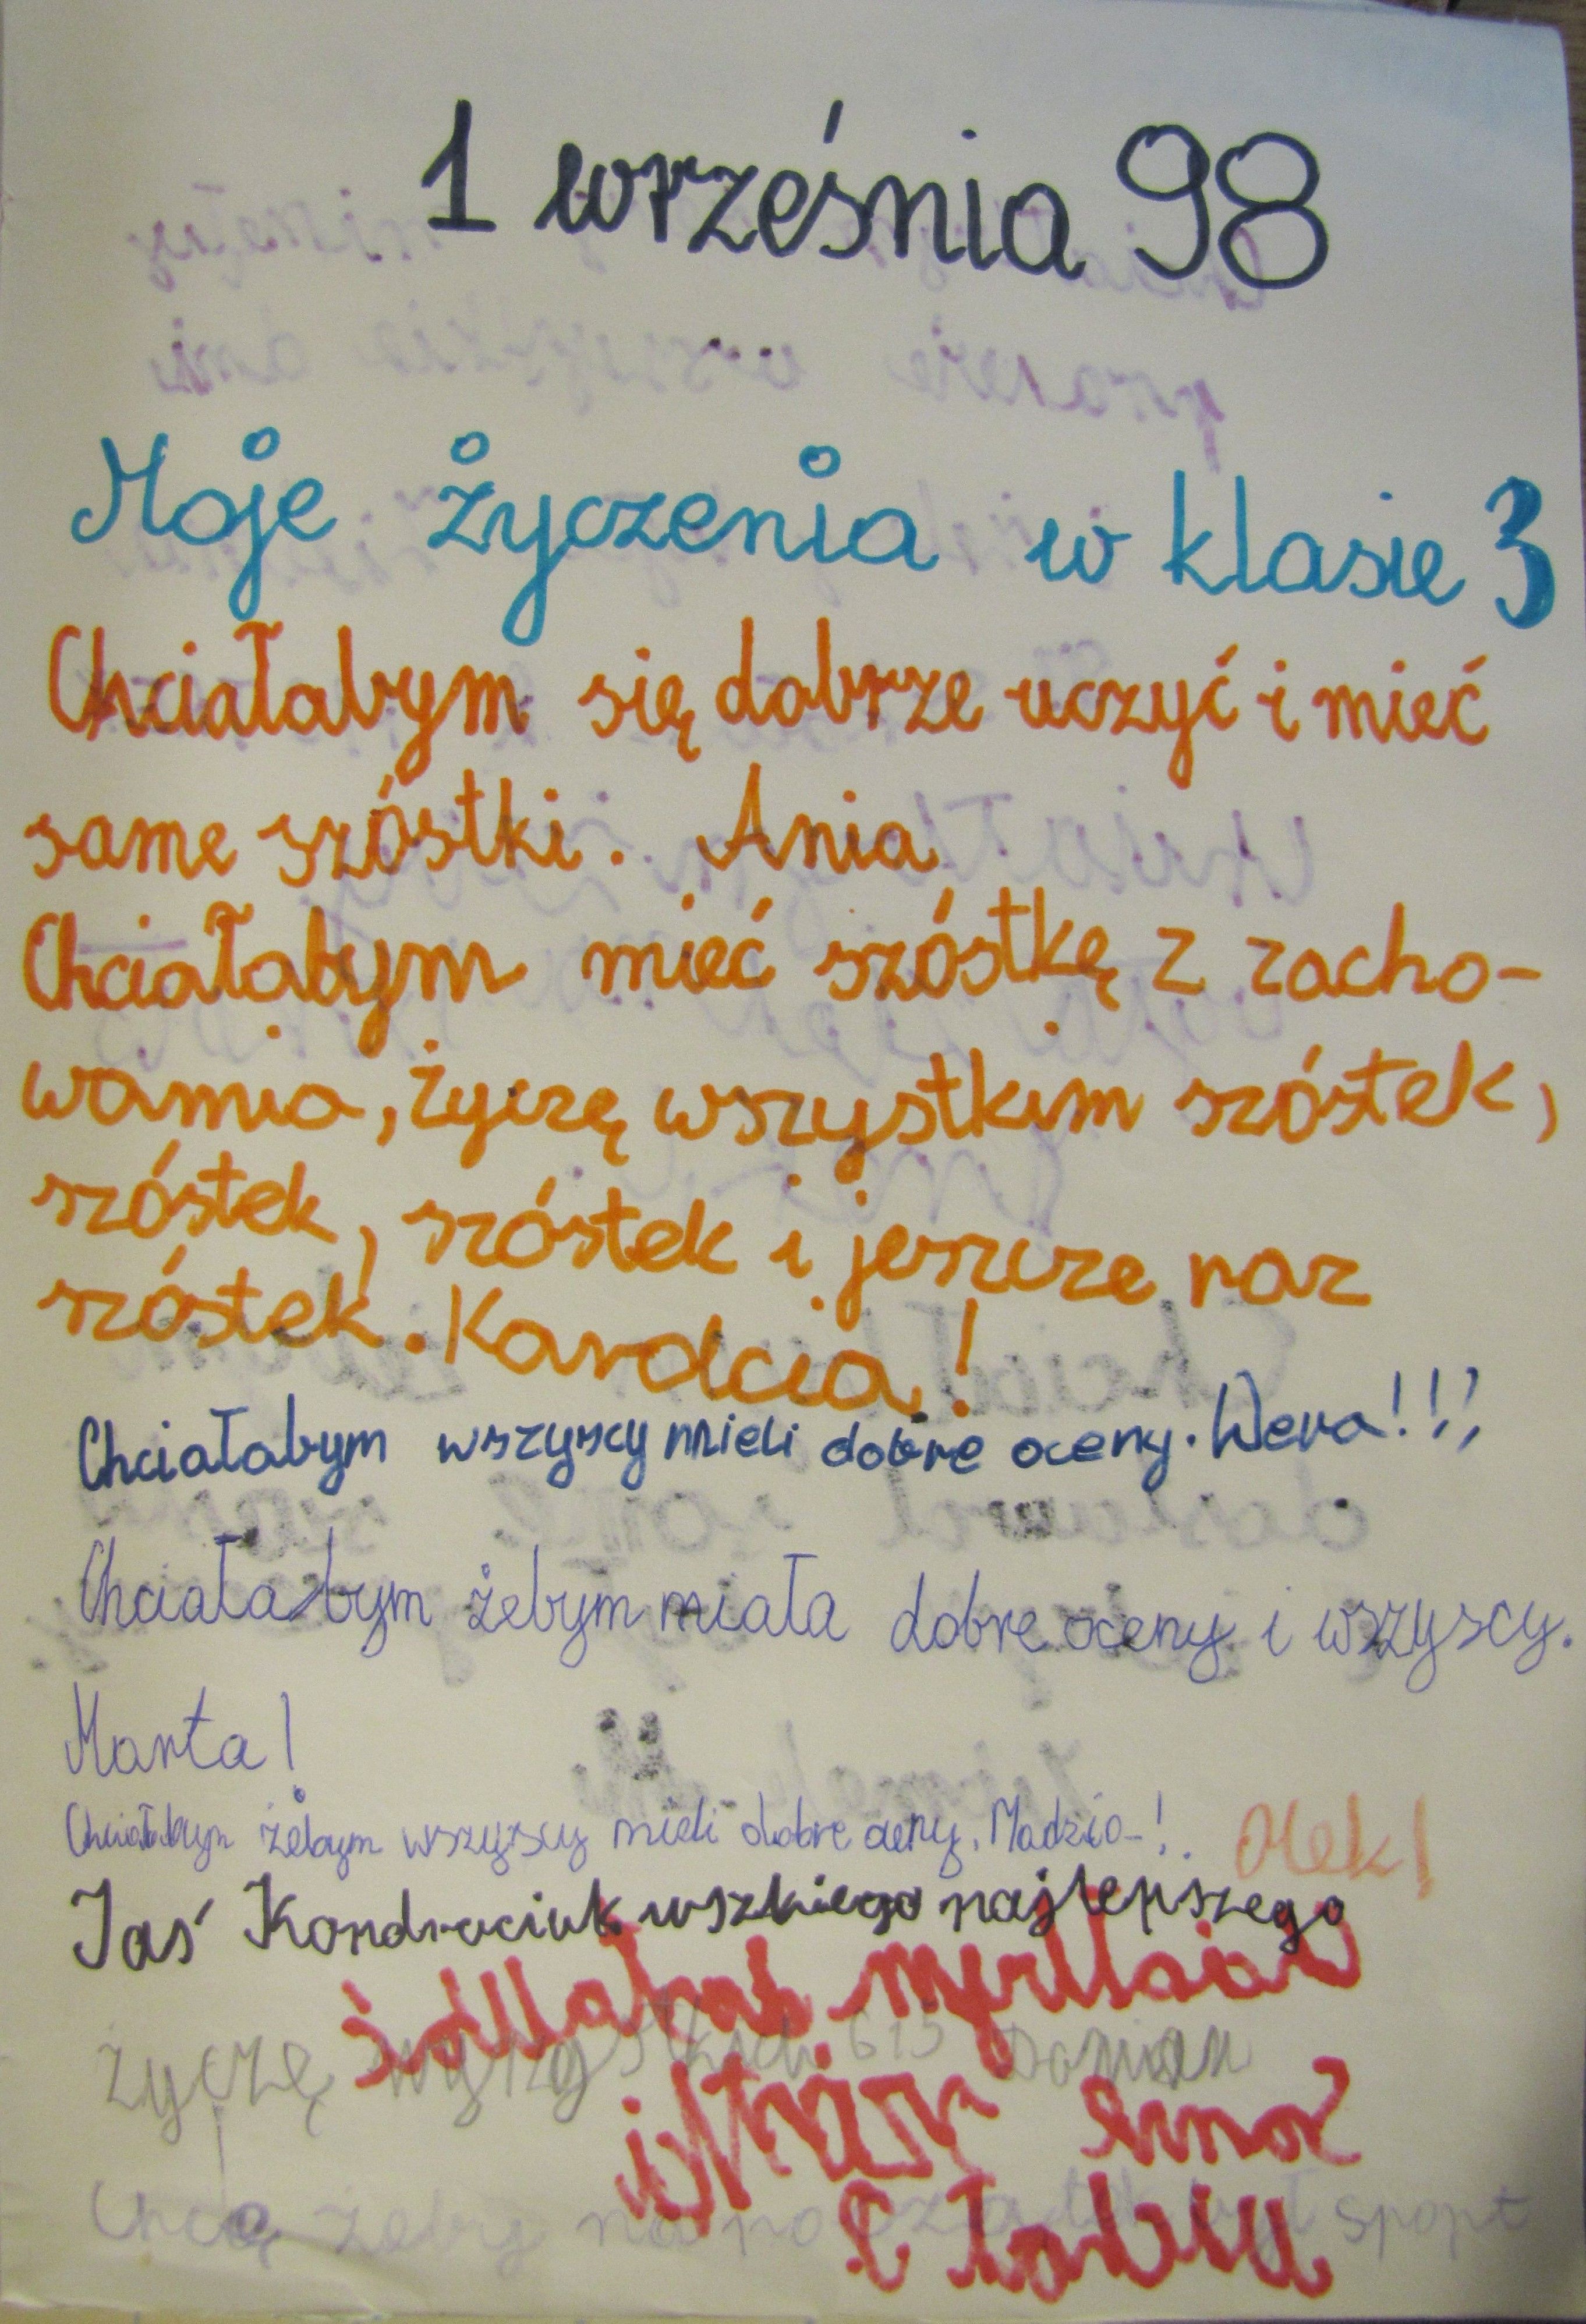 1 września 98
Moje życzenia w klasie 3
Chciałabym się dobrze uczyć i mieć
same szóstki. Ania
Chciałabym mieć szóstkę z zacho-
wania, życzę wszystkim szóstek,
szóstek, szóstek i jeszcze raz
szóstek. Karolcia!
Chciałabym wszyscy mieli dobre oceny. Wera!!!
Chciałabym żebym miała dobre oceny i wszyscy.
Marta!
Chciałabym żebym wszyscy mieli dobre oceny. Madzia-!
Olek!
Jaś Kondraciuk wszkiego najlepszego
życzę 6 i 5 Damian
Chcę żeby na początek był sport